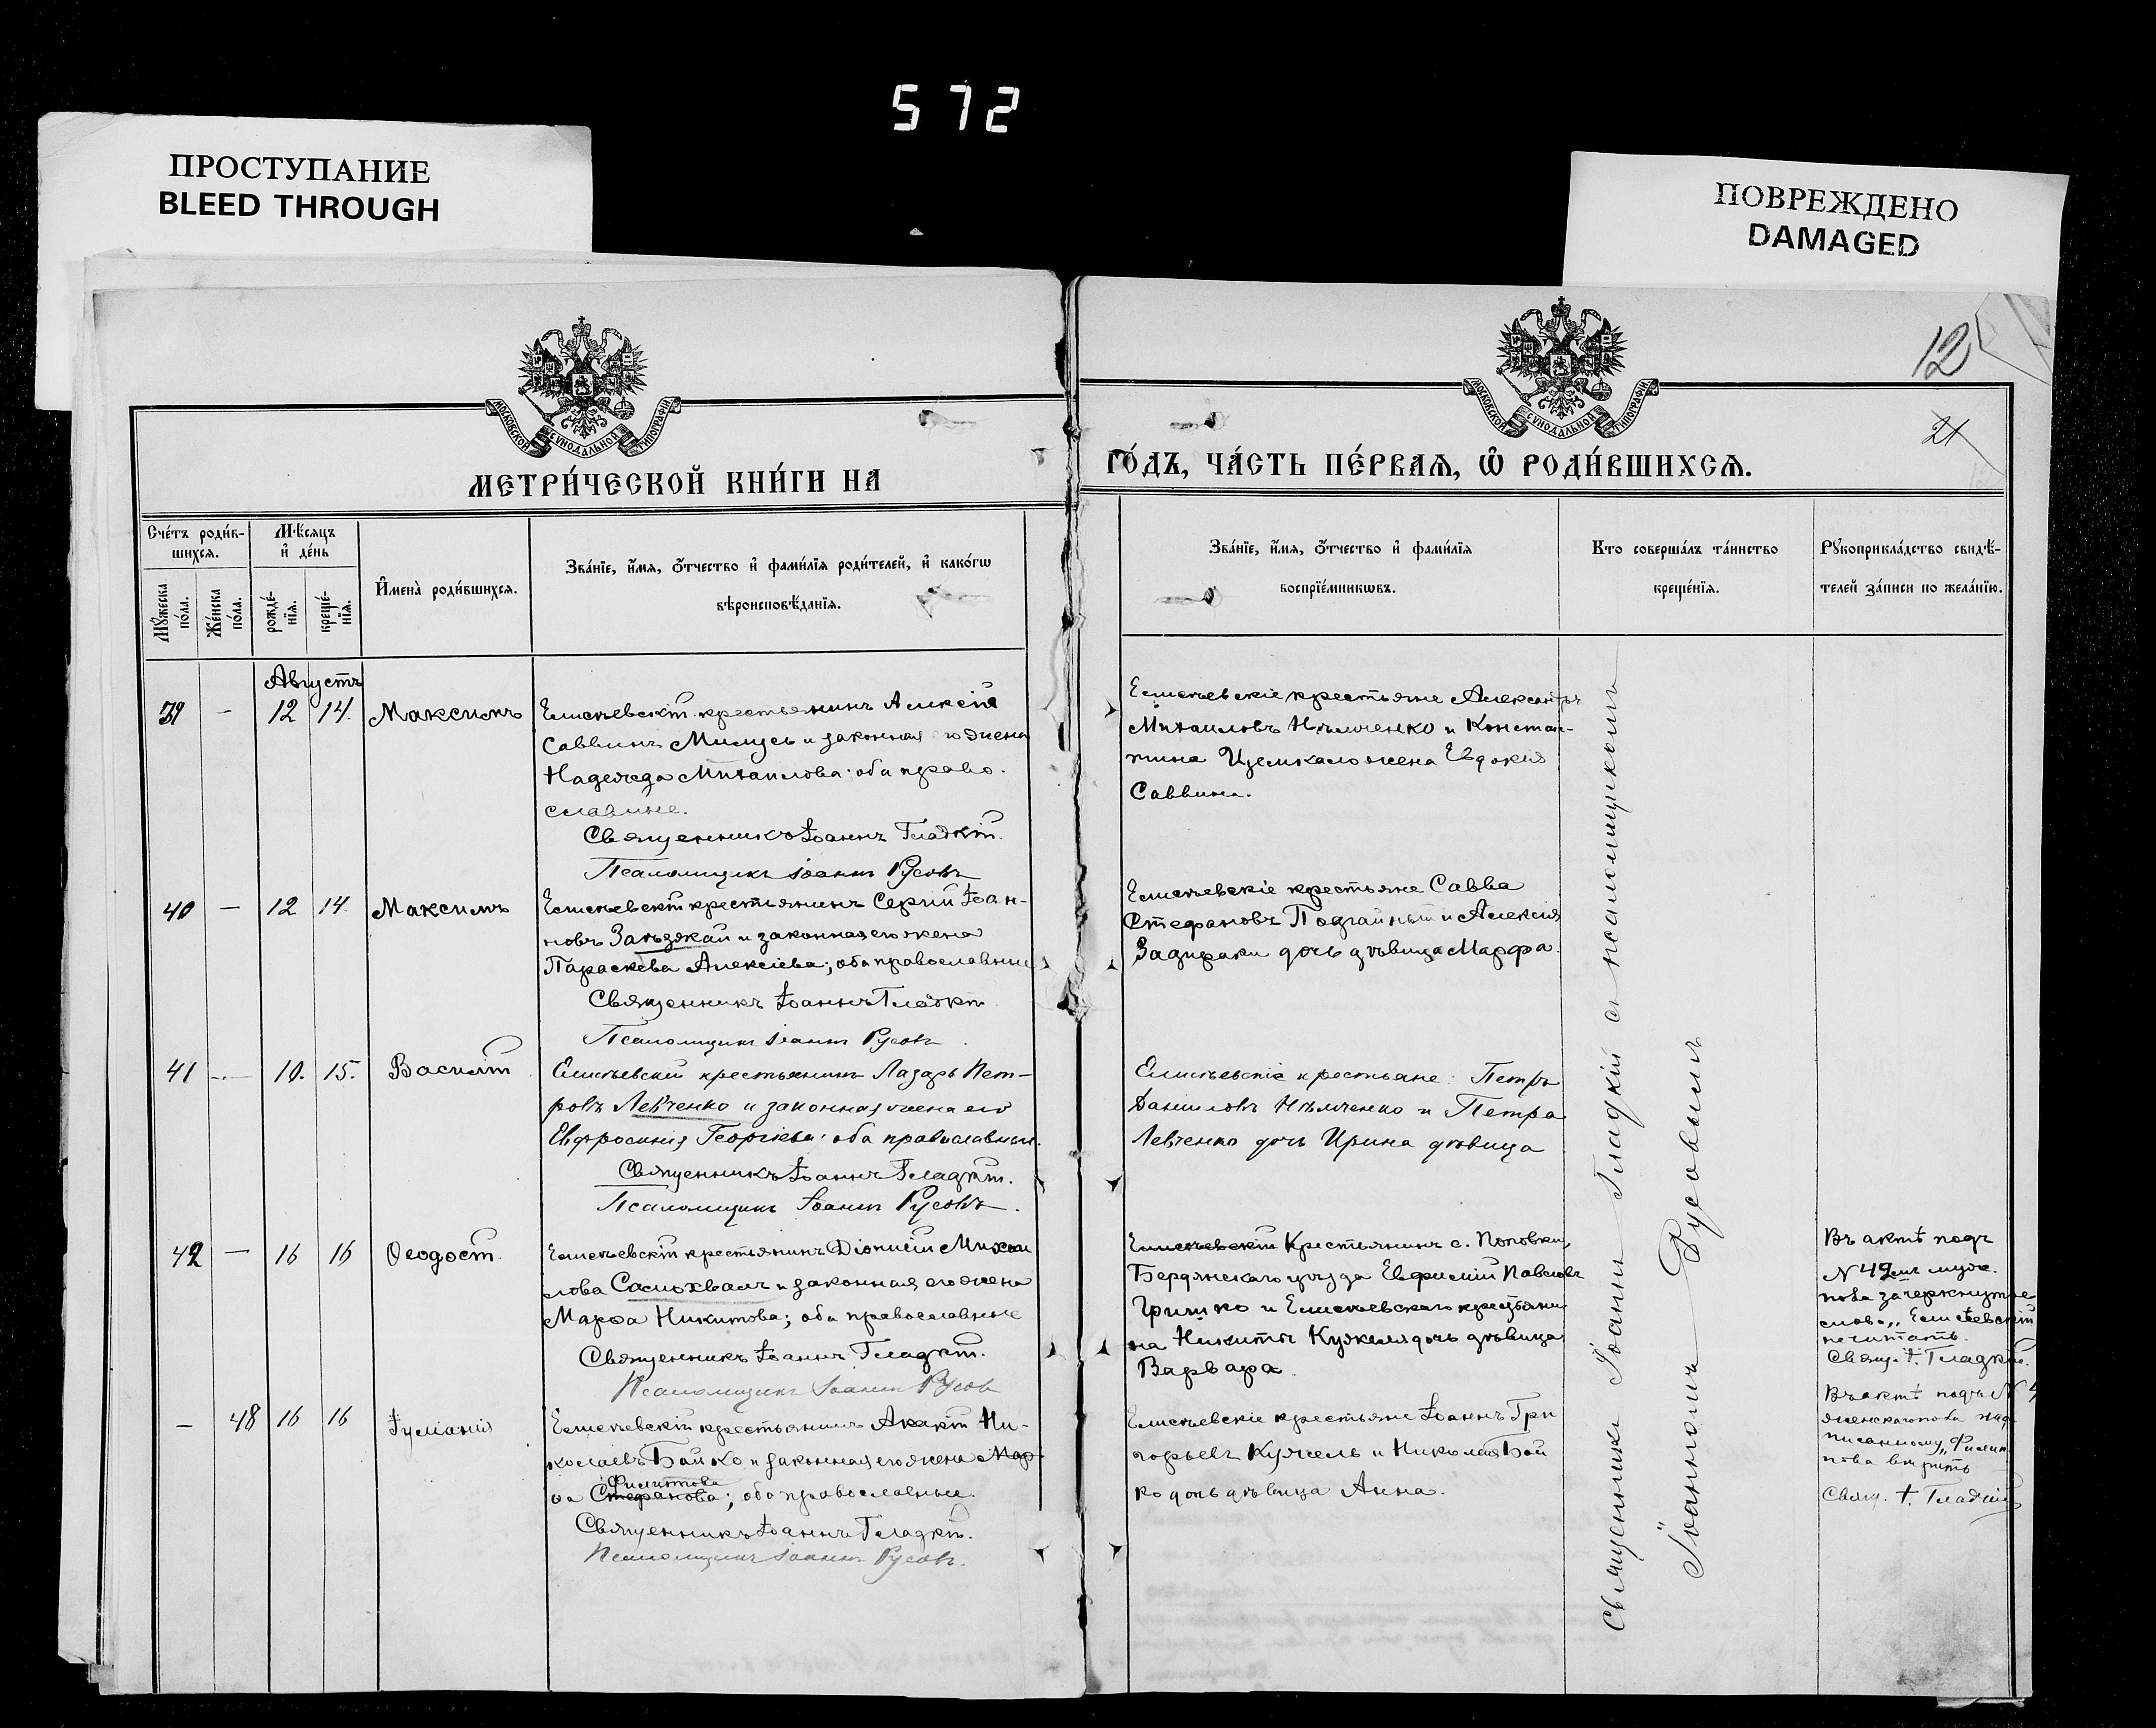 572
ПРОСТУПАНИЕ
BLEED THROUGH
ПОВРЕЖДЕНО
DAMAGED
12
21
МОСКОВСКОЙ СѴНОДАЛЬНОЙ ТИПОГРАФІИ
МОСКОВСКОЙ СѴНОДАЛЬНОЙ ТИПОГРАФІИ
МЕТРИ́ЧЕСКОЙ КНИ́ГИ НА
ГО́ДЪ, ЧА́СТЬ ПЕ́РВАѦ, Ѡ҆ РОДИ́ВШИХСѦ.
Сче́тъ роди́в-
шихсѧ.
Мꙋ́жеска по́ла.
Же́нска по́ла.
Мѣ́сѧцъ
и҆ де́нь
рожде́-
нїѧ.
креще́-
нїѧ.
И҆мена̀ роди́вшихсѧ.
Зва́нїе, и҆́мѧ, ѻ҆́тчество и҆ фами́лїѧ роди́телей, и҆ како́гѡ
вѣроисповѣ́данїѧ.
Зва́нїе, и҆́мѧ, ѻ҆́тчество и҆ фами́лїѧ
воспрїе́мникѡвъ.
Кто соверша́лъ та́инство
креще́нїѧ.
Рꙋкоприкла́дство свидѣ́-
телей за́писи по жела́нїю.
Августъ
39 — 12 14. Максимъ
Елисѣевскій крестьянинъ Алексій
Саввинъ и законная его жена
Надежда Михаилова; оба право-
славные.
Священникъ Іоаннъ Гладкій.
Псаломщикъ Іоаннъ Русовъ
Елисѣевскіе крестьяне Александръ
Михаиловъ Нѣмченко и Констан-
тина жена Евдокія
Саввина.
40 — 12 14. Максимъ
Елисѣевскій крестьянинъ Сергій Іоан-
новъ и законная его жена
Параскева Алексіева; оба православные
Священникъ Іоаннъ Гладкій
Псаломщикъ Іоаннъ Русовъ
Елисѣевскіе крестьяне Савва
Стефановъ и Алексія
Задираки дочь дѣвица Марфа.
41 — 10. 15. Василій
Елисѣевскій крестьянинъ Лазарь Пет-
ровъ Левченко и законная жена его
Евфросинія Георгіева; оба православные.
Священникъ Іоаннъ Гладкій.
Псаломщикъ Іоаннъ Русовъ.
Елисѣевскіе крестьяне: Петръ
Даниловъ Нѣмченко и Петра
Левченко дочь Ирина дѣвица
42 — 16 16 Ѳеодосій
Елисѣевскій крестьянинъ Діонисій Михаи-
лова Самохвалъ и законная его жена
Марѳа Никитова; оба православные
Священникъ Іоаннъ Гладкій.
Псаломщикъ Іоаннъ Русовъ
Елисѣевскій Крестьянинъ с. Поповки
Бердянскаго уѣзда Евфимій Павловъ
Гришко и Елисѣевскаго крестьяни-
на Никиты Кужеля дочь дѣвица
Варвара.
Въ актѣ подъ
N 42мъ муж.
пола зачеркнутое
слово „Елисѣевскій
не читать.
Свящ. І. Гладкій.
— 48 16 16 Іуліанія
Елисѣевскій крестьянинъ Акакій Ни-
колаевъ Бойко и законная его жена Мар-
Филиппова
ѳа Стефанова; оба православные.
Священникъ Іоаннъ Гладкій.
Псаломщикъ Іоаннъ Русовъ.
Елисѣевскіе крестьяне Іоаннъ Гри-
горьевъ Кужель и Николая Бой-
ко дочь дѣвица Анна.
Въ актѣ подъ N 4
женскаго пола над-
писанному „Филип-
пова вѣрить
Свящ. І. Гладкій
Священникъ Іоаннъ Гладкій съ псаломщикомъ
Іоанномъ Русовымъ